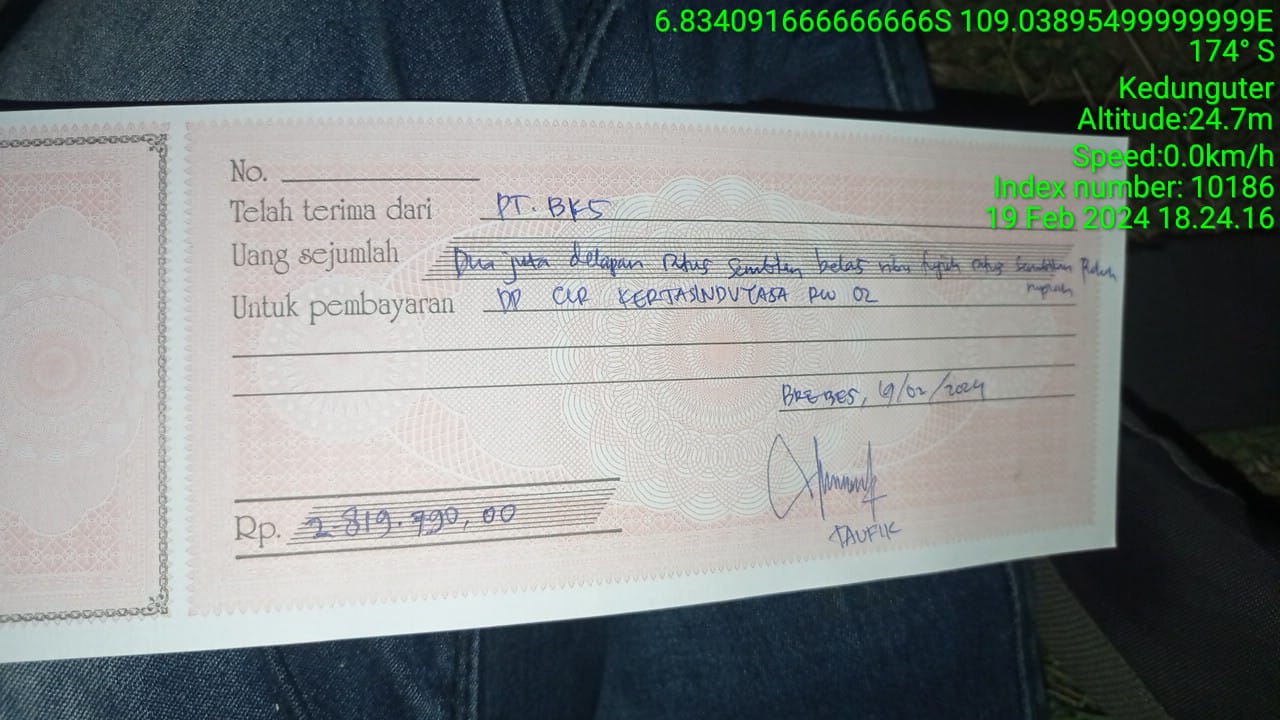 6.834091666666666S 109.03895499999999E
174° S
Kedunguter
Altitude:24.7m
Speed:0.0km/h
Index number: 10186
19 Feb 2024 18.24.16
No.
Telah terima dari PT. BKS
Uang sejumlah Dua juta delapan ratus sembilan belas ribu tujuh ratus sembilan Puluh
rupiah
Untuk pembayaran DP CLR KERTASINDUYASA RW 02
BREBES, 19/02/2024
Rp. 2.819.790,00
TAUFIK